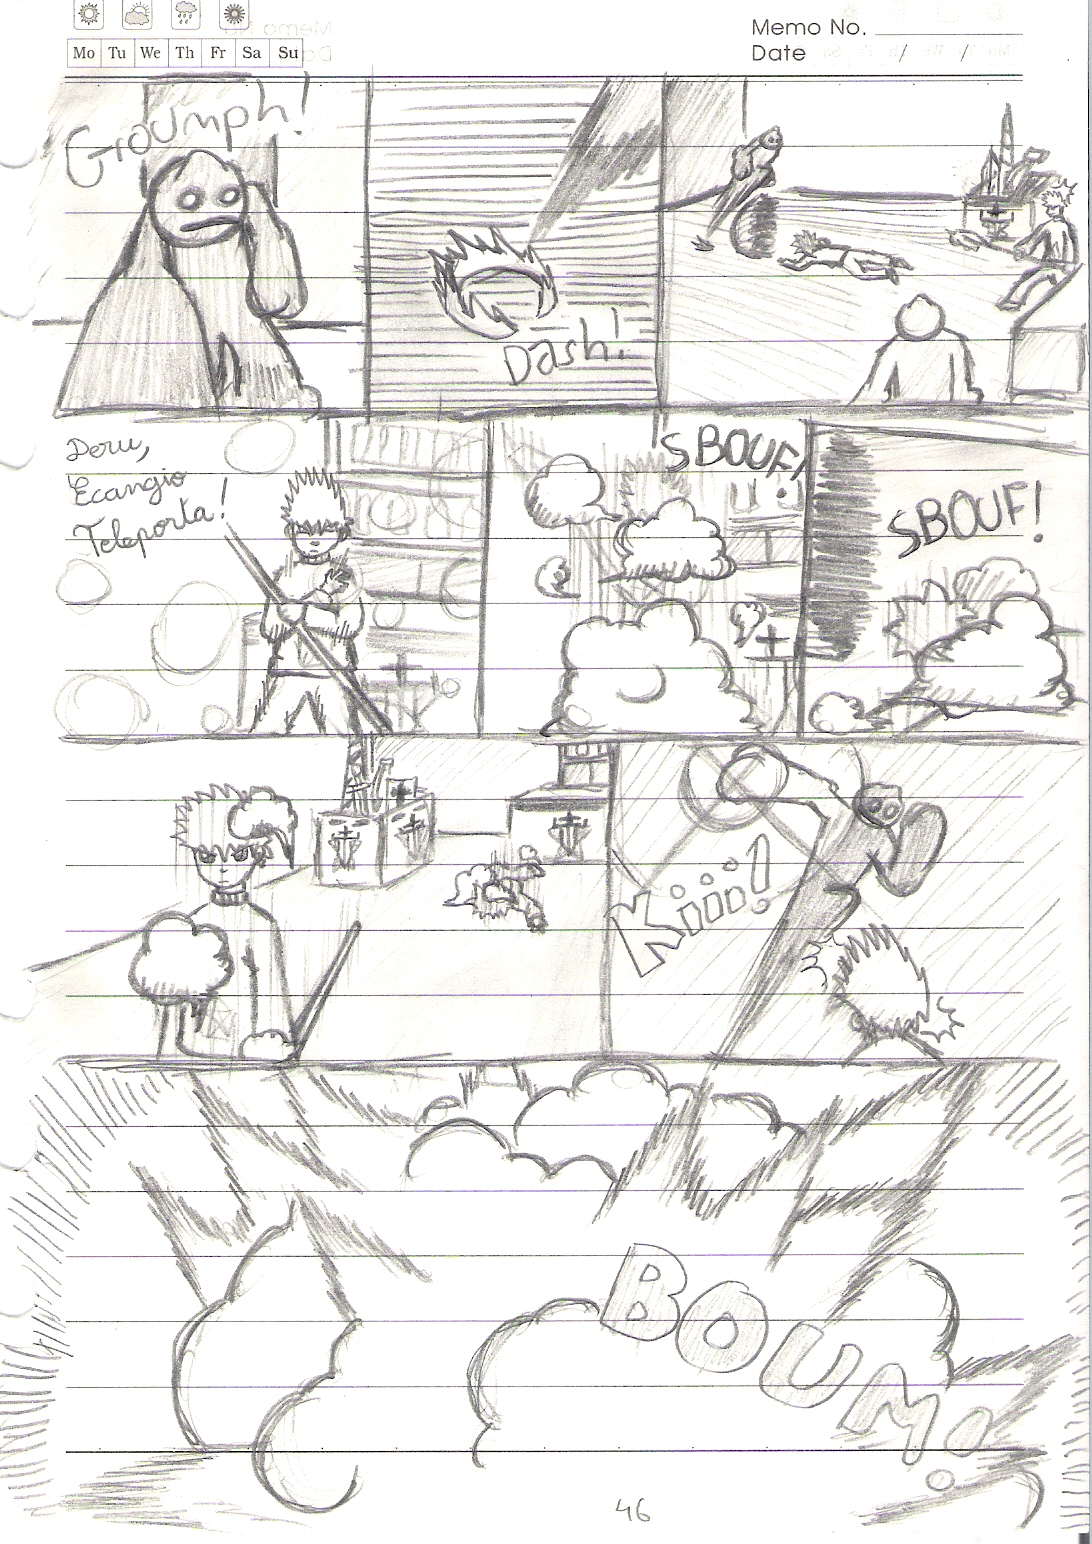 Mo Tu We Th Fr Sa Su
Memo No.
Date / /
Groumph!
Dash!
Deru,
Ecangio
Teleporta!
SBOUF!
SBOUF!
Kiiii!
BOUM!
46